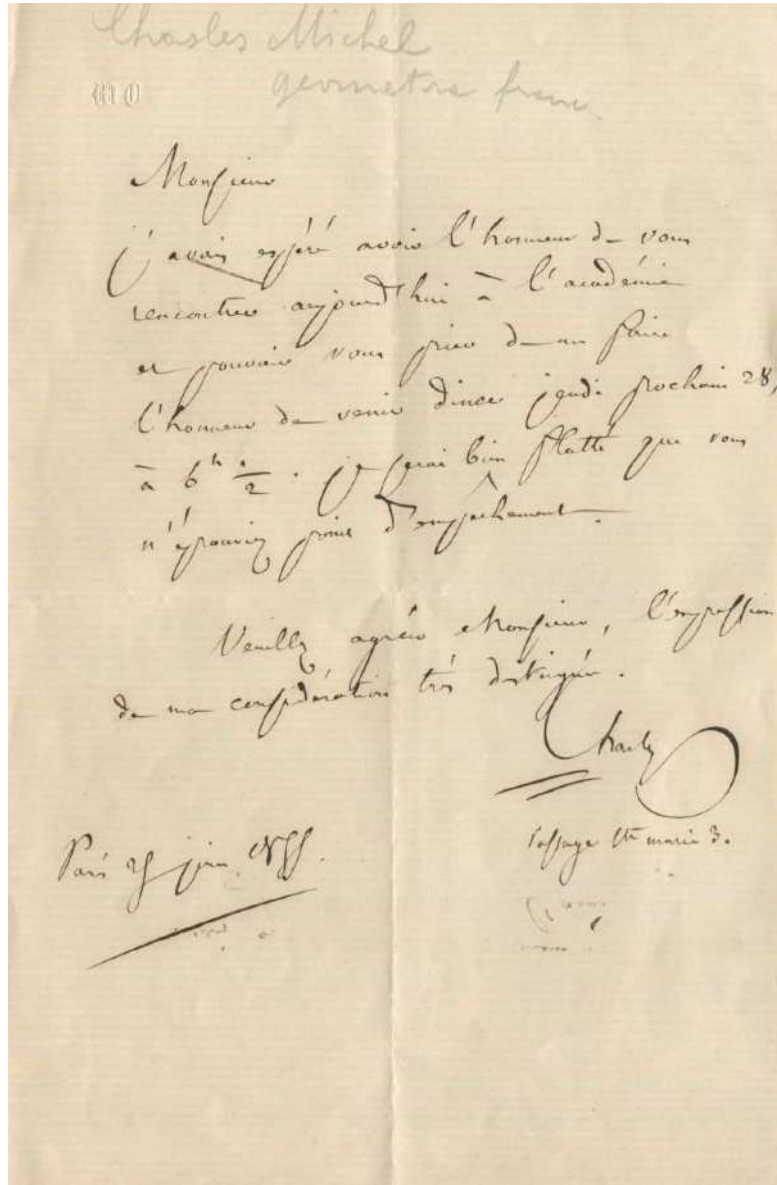 Chasles Michel
geometre franc.
Monsieur
j'avais espéré avoir l'honneur de vous
rencontrer aujourd'hui à l'académie
et pouvoir vous prier de me faire
l'honneur de venir diner jeudi prochain 28,
à 6h 1/2. je serai bien flatté que vous
n'éprouviez point d'empêchement.
Veuillez agréer Monsieur, l'expression
de ma considération très distinguée.
Chasles
Passage Ste marie 3.
Paris 25 juin